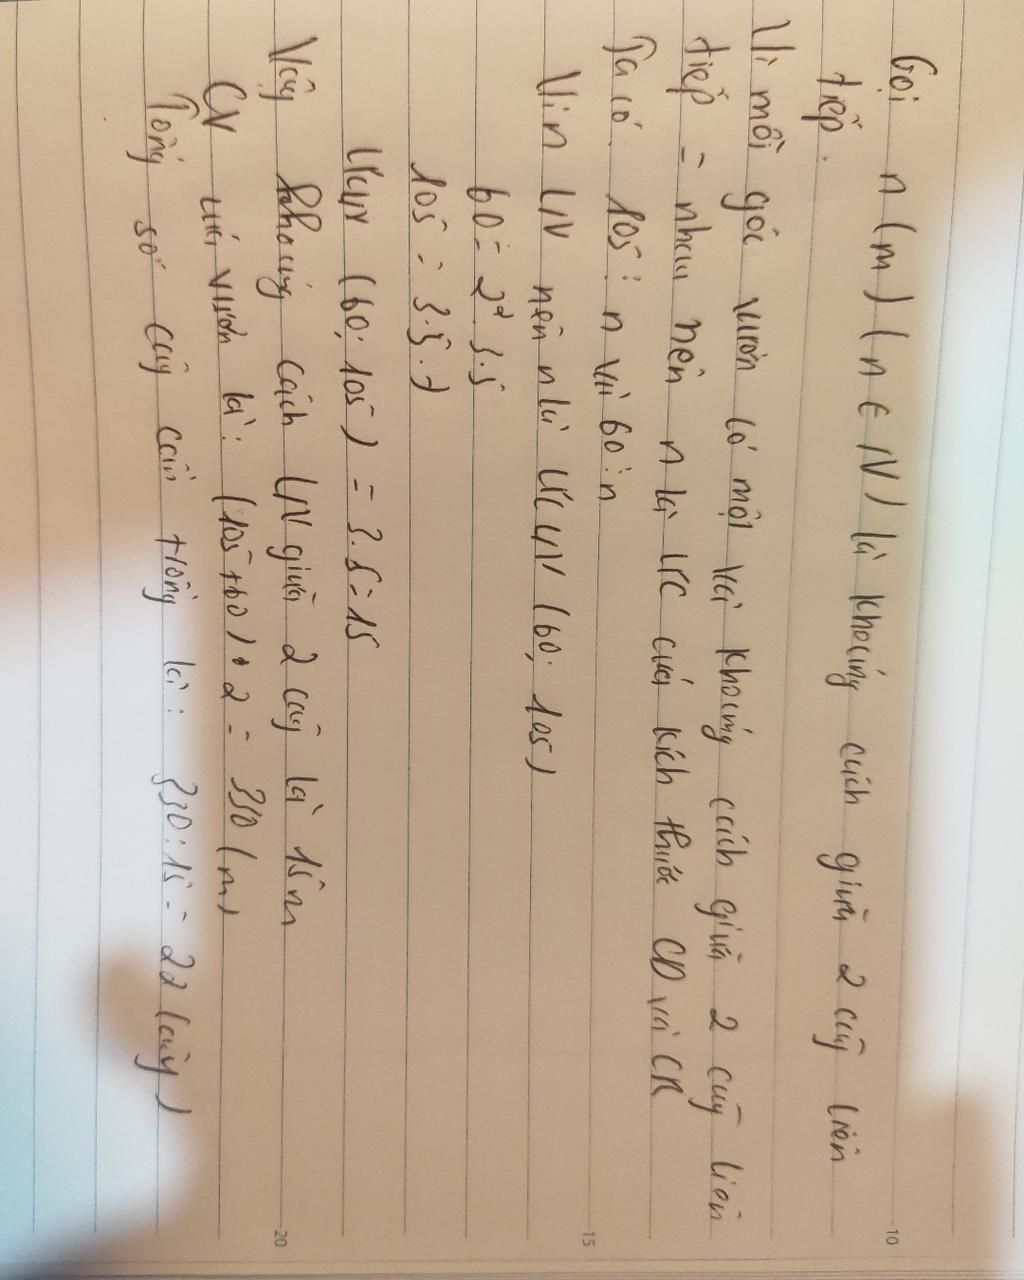 Gọi n (m) (n ∈ N) là khoảng cách giữa 2 cây liên
tiếp.
Vì mỗi góc vườn có một và khoảng cách giữa 2 cây liên
tiếp = nhau nên n là ƯC của kích thước CD và CR
Ta có 105 ⋮ n và 60 ⋮ n
Vì n LN nên n là ƯCLN (60; 105)
60 = 2². 3.5
105 = 3.5.7
ƯCLN (60; 105) = 3.5 = 15
Vậy khoảng cách LN giữa 2 cây là 15m
CV của vườn là: (105 + 60) . 2 = 330 (m)
Tổng số cây cần trồng là: 330 : 15 = 22 (cây)
10
15
20